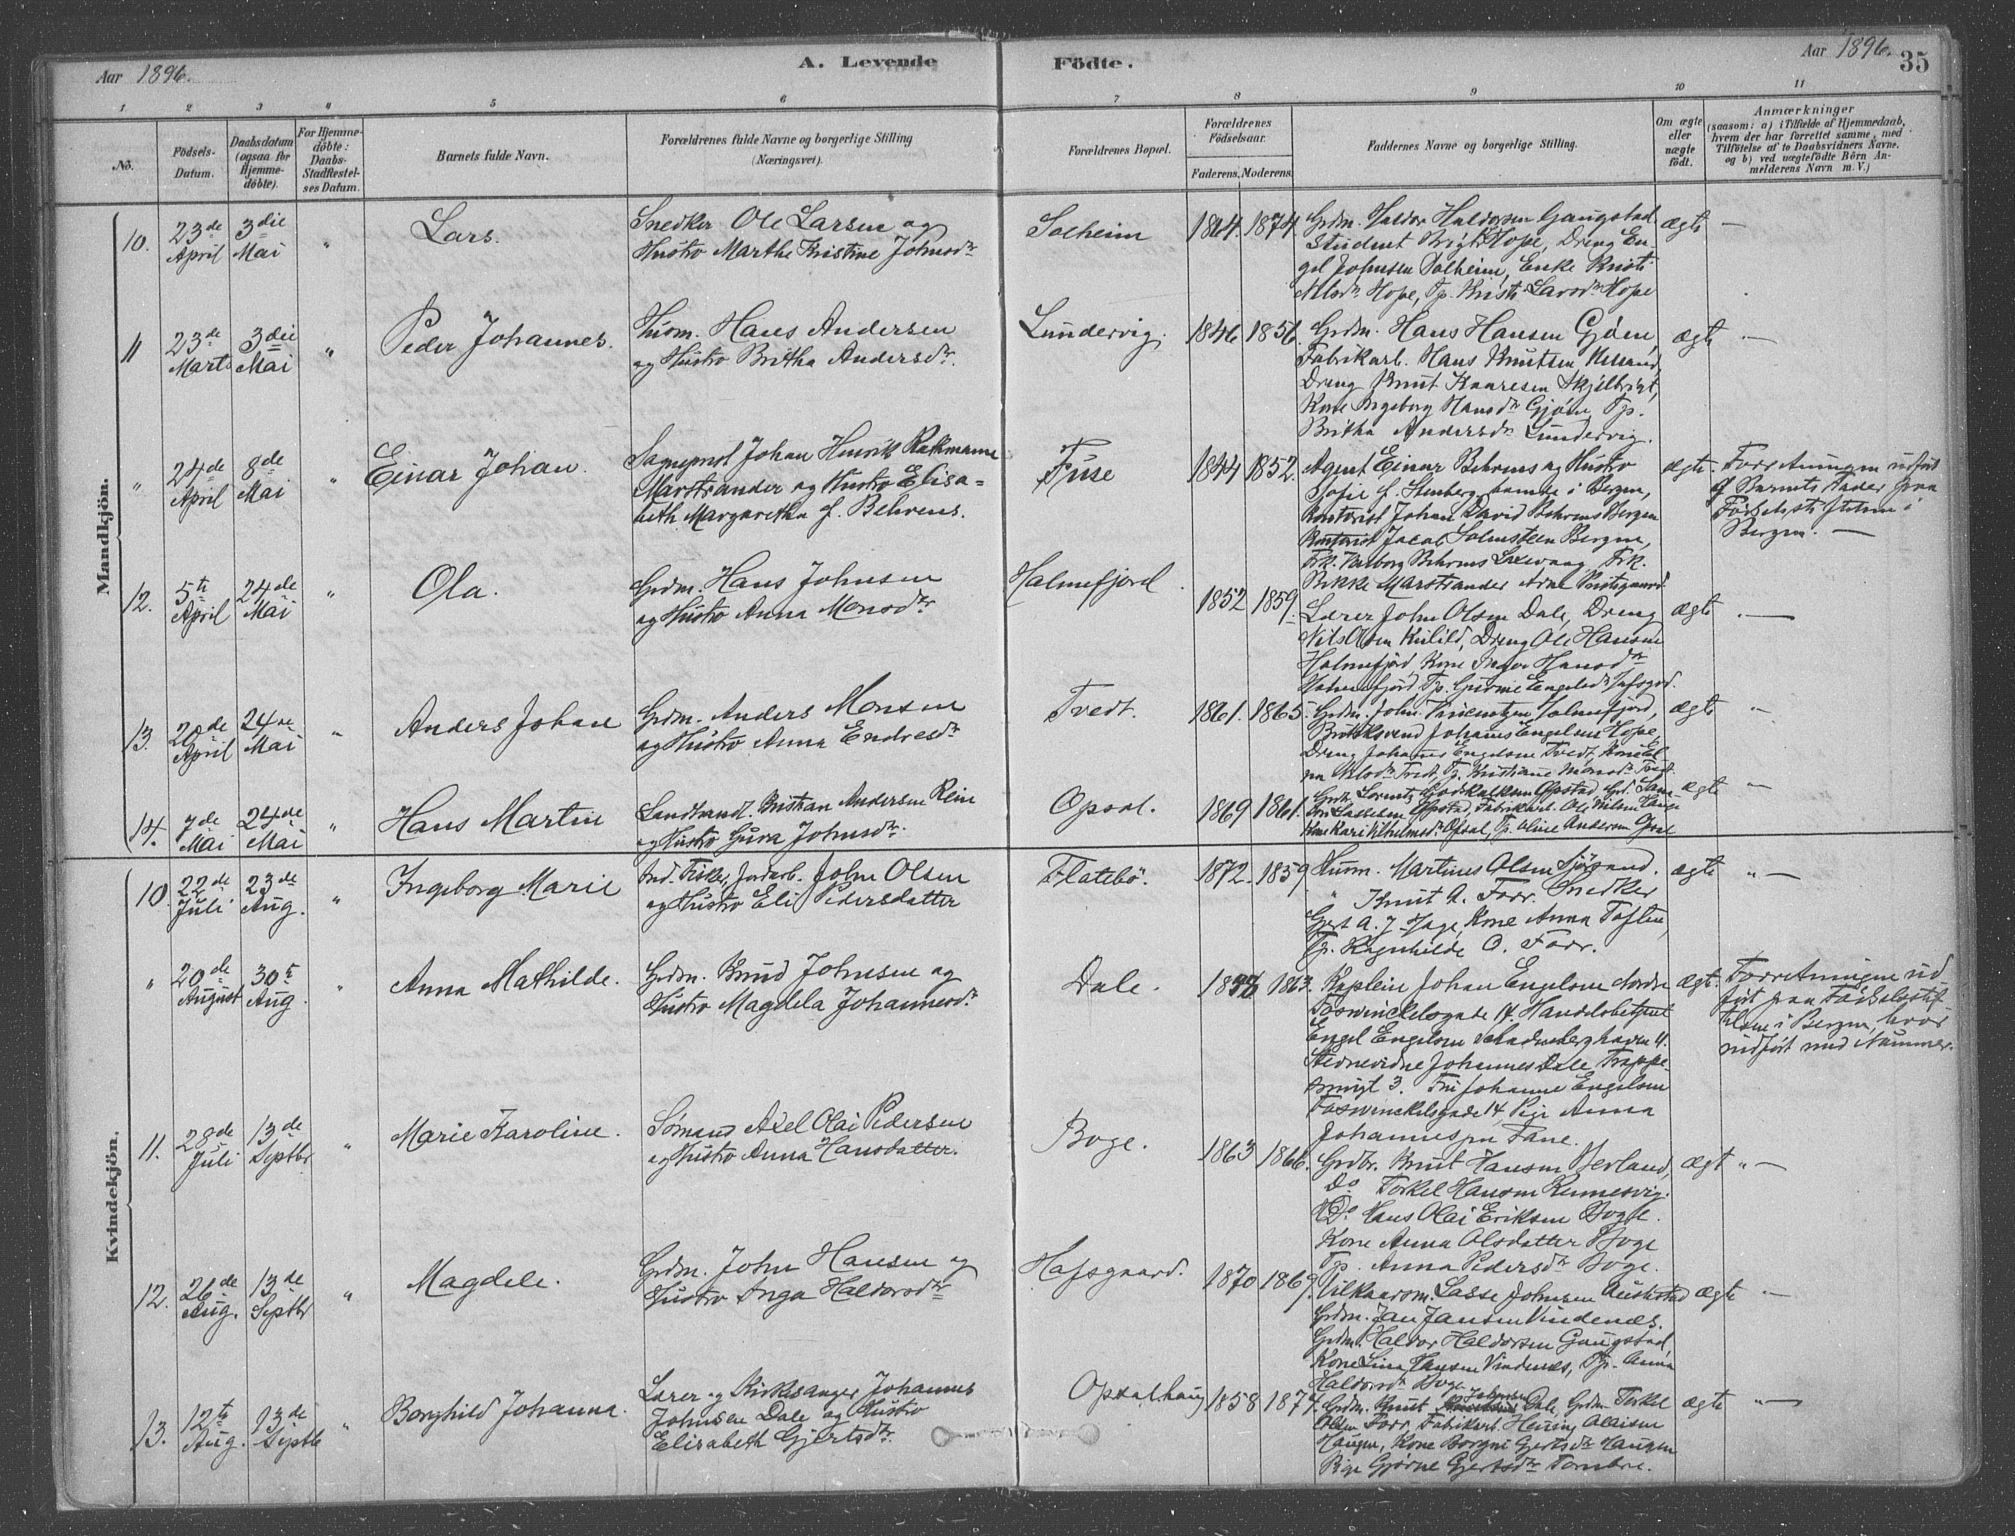 Aar 1896.
A. Levende
Födte.
Aar 1896.
35
1 2 3 4 5 6 7 8 9 10 11
No.
Födsels-
Datum.
Daabsdatum
(ogsaa for
Hjemme-
döbte).
For Hjemme-
döbte:
Daabs-
Stadfæstel-
ses Datum.
Barnets fulde Navn.
Forældrenes fulde Navne og borgerlige Stilling
(Næringsvei).
Forældrenes Bopæl.
Forældrenes
Födselsaar.
Faderens. Moderens.
Faddernes Navne og borgerlige Stilling.
Om ægte
eller
uægte
födt.
Anmærkninger
(saasom: a) i Tilfælde af Hjemmedaab,
hvem der har forrettet samme, med
Tilföielse af to Daabsvidners Navne.
og b) ved uægtefödte Börn An-
melderens Navn m. V.)
Mandkjön.
10.
23de
April
3die
Mai
"
Lars.
Snedker Ole Larsen og
Hustro Marthe Kristine Johnsdr
Solheim
1864. 1874.
Grdm. Haldor Haldorsen Gaugstad
Student Brigt Hope, Dreng En-
gel Johnsen Solheim, Enke Kristi
Nilsdr Hope, Tp. Kristi Larsdr Hope
ægte
—
11
23de
Marts
3die
Mai
"
Peder Johannes.
Husm. Hans Andersen
og Hustro Britha Andersdr.
Lundervig.
1846 1856.
Grdm. Hans Hansen Gjöen,
Fabrikarb. Hans Knutsen
Dreng Knut Kaaresen Skjelbrigt,
Kone Ingeborg Hansdr Gjöen, Tp.
Britha Andersdr Lundervig.
ægte
—
"
24de
April
8de
Mai
"
Einar Johan.
Sogneprest Johan Henrik
Marstrander og Hustro Elisa-
beth Margaretha f. Behrens.
Fuse
1844 1852.
Agent Einar Behrens og Hustro
Sofie f. Stenberg, samme i Bergen,
Kontorist Johan David Behrens Bergen
Kontorist Jacob Bergen,
Frk. Valborg Behrens Frk.
Rikke Marstrander
ægte.
Forretningen udfört
af Barnets Fader paa
Födselsstiftelsen i
Bergen. —
12.
5te
April
24de
Mai
"
Ola.
Grdm. Hans Johnsen
og Hustro Anna Monsdr
Holmefjord.
1852 1859.
Lærer John Olsen Dale, Dreng
Nils Olsen Dreng Ole Hansen
Holmefjord, Kone Inger Hansdr
Holmefjord, Tp. Gurine Engelsdr
ægte
—
13.
20de
April
24de
Mai
"
Anders Johan
Grdm. Anders Monsen
og Hustro Anna Endresdr
Tvedt.
1861. 1865.
Grdm. John Vincentzen Holmefjord,
Johannes Engelsen Hope,
Dreng Johannes Engelsen Tvedt, Kone El-
Nilsdr Tvedt, Tp. Kristiane Monsdr Tvedt.
ægte
"
14.
7de
Mai
24de
Mai
"
Hans Martin
Landhandl. Kristian Andersen Rein
og Hustro Gura Johnsdr.
Opsal.
1869 1861.
Grdbr. Lorentz Godskalksen Opstad,
Lassesen Opstad, Fabrikarb. Ole Nilsen
Kone Kari Vilhelmsdr Opsal, Tp. Oline Andersen Opsal
ægte
"
Kvindekjön.
10.
22de
Juli
23de
Aug.
"
Ingeborg Marie
Ind. Fisker, Jordarb. John Olsen
og Hustro Eli Pedersdatter
Flatebö.
1872. 1859
Husm. Martines Olsen
" Knut A. Farr. Snedker
Gjert A. J. Hage, Kone Anna Toften,
Tp. Ragnhilde O. Farr.
ægte
" —
"
20de
August
30te
Aug.
"
Anna Mathilde.
Grdm. Knud Johnsen og
Hustro Magdela Johannesdr.
Dale.
1863.
Kaptein Johan Engelsen Nordre
Foswinckelsgade 14, Handelsbetjent
Engel Engelsen 4.
Stevnevidne Johannes Dale, Trappe-
smuget 3. Fru Johanne Engelsen
Foswinckelsgade 14, Pige Anna
Johannessen Fane.
ægt.
Forretningen ud-
fört paa Födselsstif-
telsen i Bergen, hvor
indfört med Nummer.
11.
28de
Juli
13de
Septbr
"
Marie Karoline.
Sömand Axel Olai Pedersen
og Hustro Anna Hansdatter.
Boge.
1863 1866.
Grdbr. Knut Hansen
Do Torkel Hansen Rennesvig.
Do Hans Olai Eriksen Boge.
Kone Anna Olsdatter Boge
Tp. Anna Pedersdr Boge.
ægt
" —
12.
26de
Aug.
13de
Septbr
"
Magdele.
Grdm. John Hansen og
Hustro Inga Haldorsdr
Hafsgaard.
1870 1869.
Vilkaarsm. Lasse Johnsen
Grdm. Jan Jansen Vindenæs.
Grdm. Haldor Haldorsen Gaugstad,
Kone Lina Hansen Vindenæs, Tp. Anna
Haldorsdr Boge.
ægte
—
13.
12te
Aug.
13de
Septbr
"
Borghild Johanna.
Lærer og Kirkesanger Johannes
Johnsen Dale og Hustro
Elisabeth Gjertsdr.
Opsalhaug
1858 1877.
Grdm. Knut Johnsen Dale, Grdm. Torkel
Olsen Farr, Fabrikarb. Henrik Olaisen
Haugen, Kone Borgni Gjertsdr Haugen
Pige Gjörne Gjertsdr Tombre.
ægte
" —